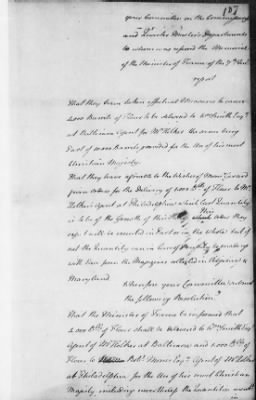 187
your Committee on the Commissary
and Quarter Master's Departments
to whom was referred the Memorial
of the Minister of France of the 7th Inst.
report
That they have taken effectual Measures to cause
2,000 Barrels of Flour to be delivered to Wm Smith Esqr
at Baltimore Agent for Mr Holker the same being
Part of Barrels for the Use of his most
Christian Majesty.
That they have agreeable to the of Monsr Gerard
given Orders for the Delivery of 1,000 Bls of Flour to Mr
Holker's Agent at Philadelphia which last Quantity
is to be of the Growth of this
will be executed in Part or in the whole but if
not the Quantity can in Case of be made up
with Flour from the Magazines collected in Delaware &
Maryland
Wherefore your Committee submit
the following Resolution
That the Minister of France be informed that
2,000 Bls of Flour shall be delivered to Wm Smith Esqr
Agent of Mr Holker at Baltimore and 1,000 Bls of
Flour to Robt Morris Esqr Agent of Mr Holker
at Philadelphia for the Use of his most Christian
Majesty including nevertheless the Quantities